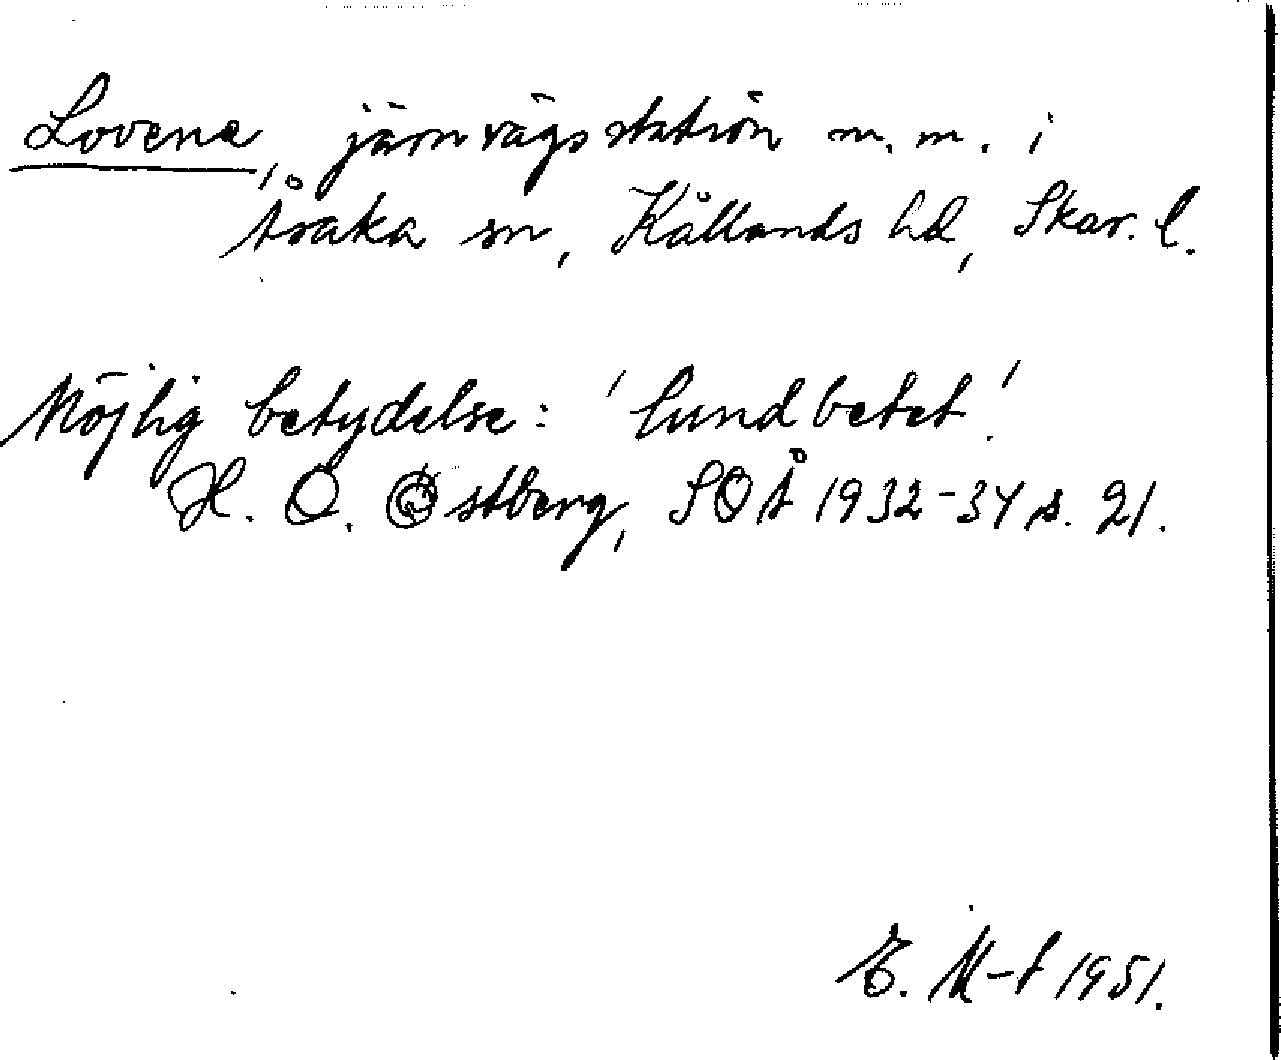 Lovene, järnvägsstation m. m. i
Åraka sn, Kållands hd, Skar. l.
Möjlig betydelse: 'lundbetet'.
H. O. Östberg, SOÅ 1932-34 s. 21.
E. M-t 1951.